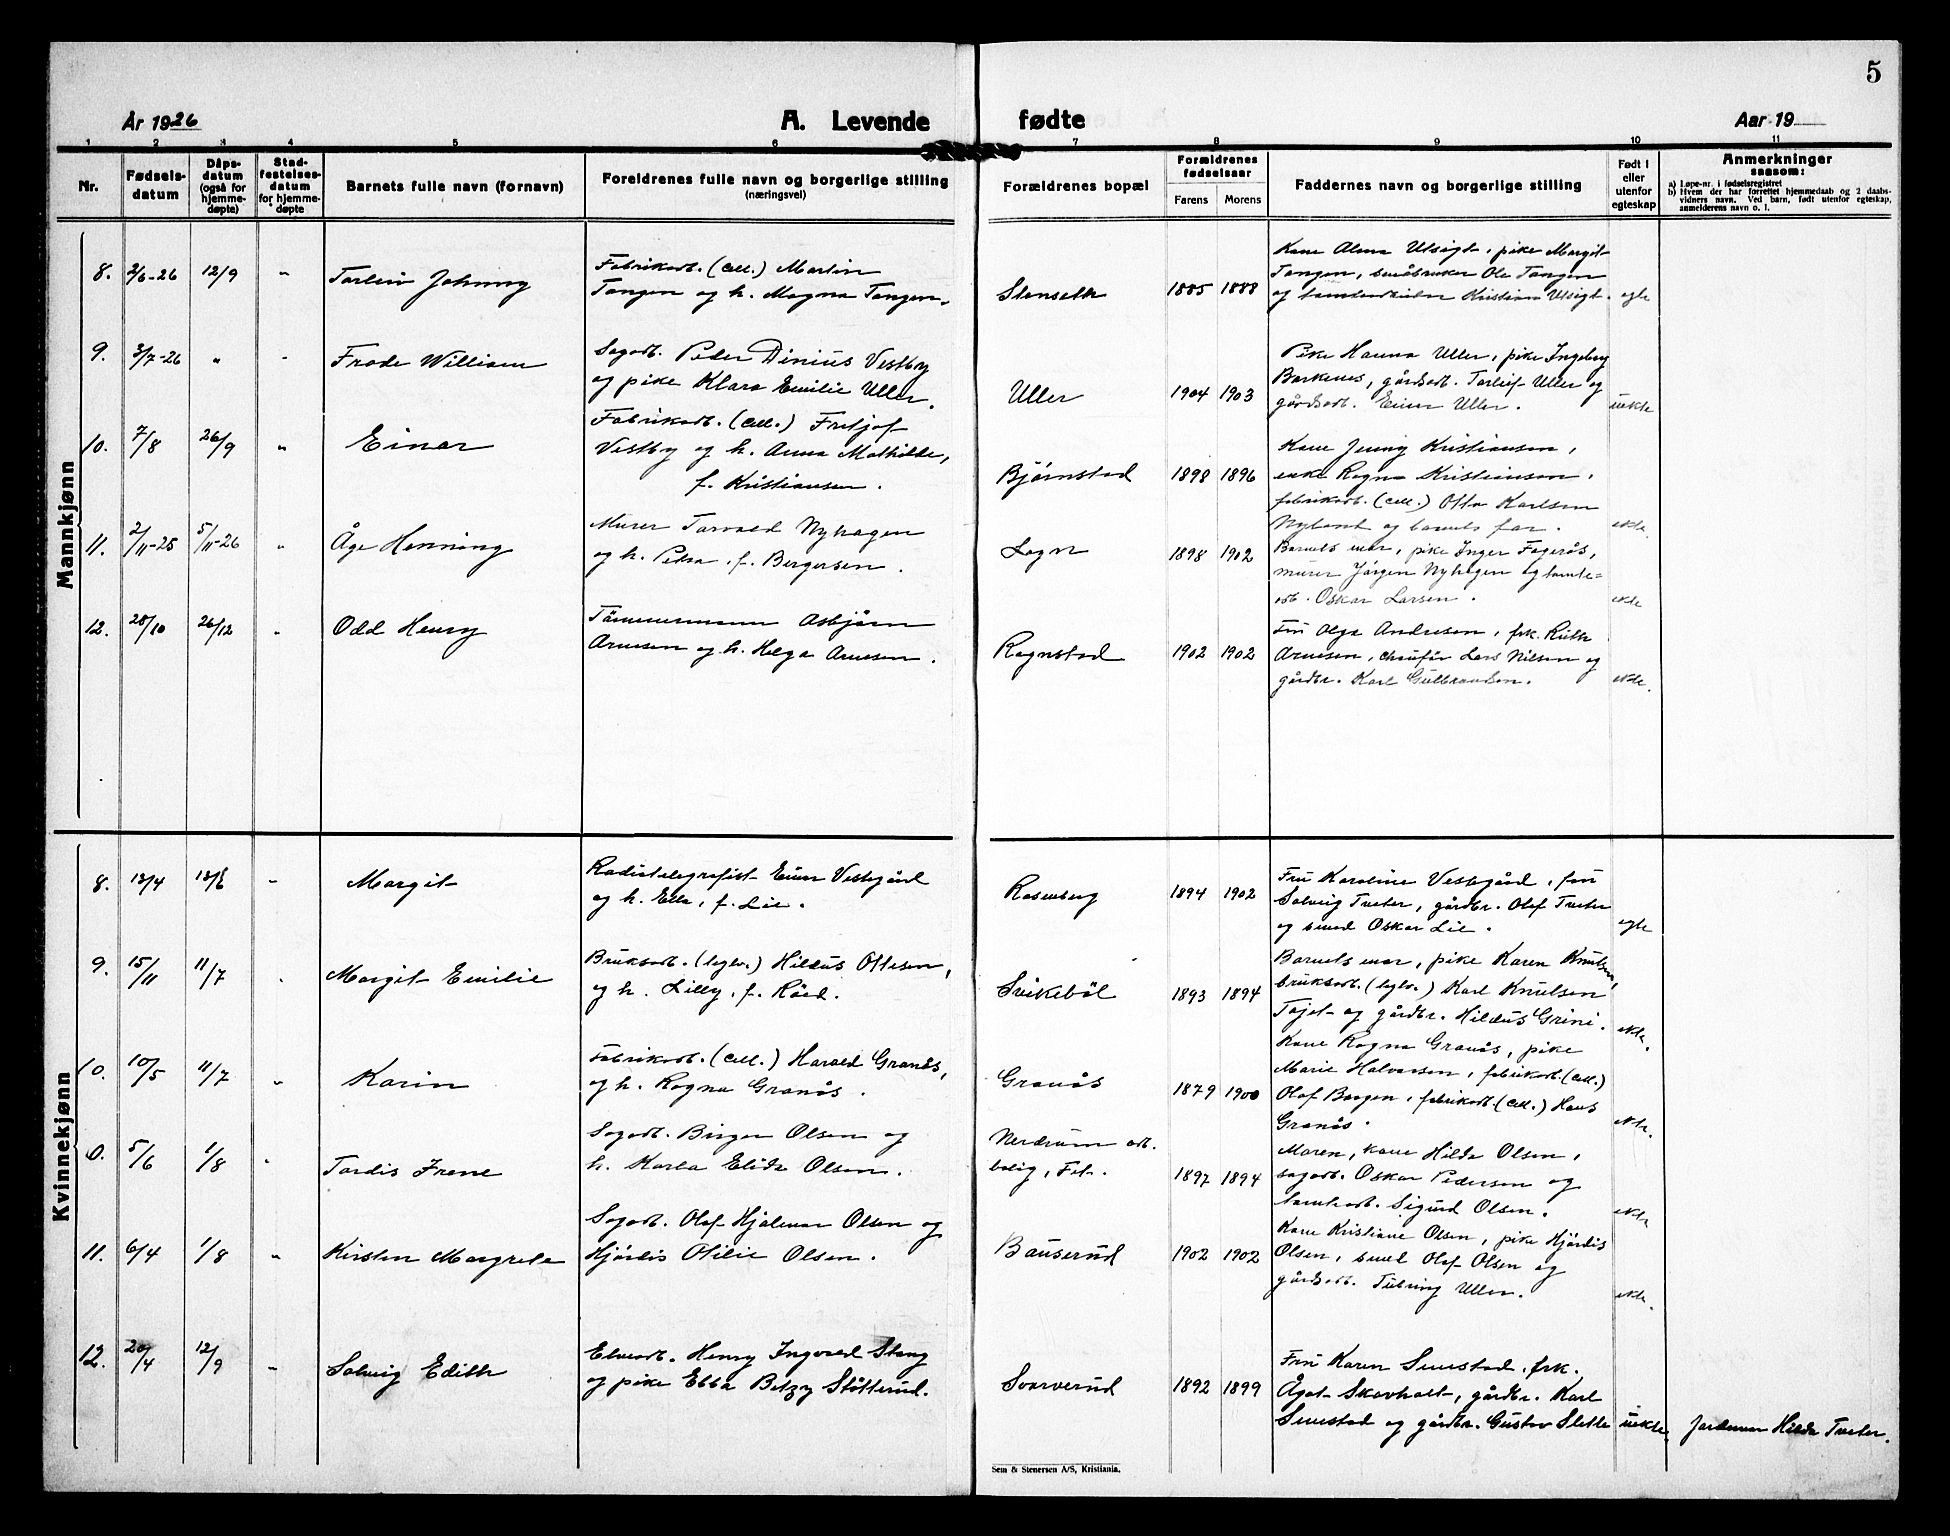 5
År 1926
A. Levende
fødte
Aar 19
1 2 3 4 5 6 7 8 9 10 11
Nr.
Fødsels-
datum
Dåps-
datum
(også for
hjemme-
døpte)
Stad-
festelses-
datum
for hjemme-
døpte
Barnets fulle navn (fornavn)
Foreldrenes fulle navn og borgerlige stilling
(næringsvei)
Forældrenes bopæl
Forældrenes
fødselsaar
Farens Morens
Faddernes navn og borgerlige stilling
Født i
eller
utenfor
egteskap
Anmerkninger
saasom:
a) Løpe-nr. i fødselsregistret
b) Hvem der har forrettet hjemmedaab og 2 daabs-
vidners navn. Ved barn, født utenfor egteskap,
anmelderens navn o. l.
Mannkjønn
8. 2/6-26 12/9 " Torleiv Johnny
Fabrikarb. (cell.) Martin
Tangen og h. Magna Tangen.
Stenseth 1885 1888
Kone Alma Utsigt, pike Margit
Tangen, småbruker Ole Tangen
og Kristian Utsigt. egte
9. 3/7-26 " " Frode William
Sagarb. Peder Dinius Vestby
og pike Klara Emilie Uller.
Uller 1904 1903
Pike Hanna Uller, pike Ingeborg
Barkenes, gårdsarb. Torleif Uller og
gårdsarb. Einar Uller. uekte
10. 7/8 26/9 " Einar
Fabrikarb. (cell.) Fritjof
Vestby og h. Anna Mathilde,
f. Kristiansen.
Bjørnstad 1898 1896
Kone Jenny Kristiansen,
enke Ragna Kristiansen,
fabrikarb. (cell.) Otto Karlsen
Nyland og barnets far. ekte
11. 2/11-25 5/11-26 " Åge Henning
Murer Torvald Nyhagen
og h. Petra, f. Bergersen.
Logn 1898 1902
Barnets mor, pike Inger Fagerås,
murer Jørgen Nyhagen og tomte-
arb. Oskar Larsen. ekte
12. 28/10 26/12 " Odd Henry
Tømmermann Asbjørn
Arnesen og h. Helga Arnesen.
Rognstad 1902 1902
Fru Olga Andresen, frk. Ruth
Arnesen, chaufør Lars Nilsen og
gårdbr. Karl Gulbrandsen. ekte.
Kvinnekjønn
8. 13/4 13/6 " Margit
Radiotelegrafist Einar Vestgård
og h. Ella, f. Lie.
Rosenberg 1894 1902
Fru Karoline Vestgård, fru
Solveig Tveter, gårdbr. Olof Tveter
og smed Oskar Lie. egte
9. 15/11 11/7 " Margit Emilie
Bruksarb. (teglv.) Hildus Ottesen,
og h. Lilly, f. Röed.
Svikebøl 1893 1894
Barnets mor, pike Karen Knutsen,
bruksarb. (teglv.) Karl Knutsen
Tajet og gårdbr. Hildus Grini. ekte.
10. 10/5 11/7 " Karin
Fabrikarb. (cell.) Harald Granås,
og h. Ragna Granås.
Granås 1879 1900
Kone Ragna Granås, pike
Marie Halvorsen, fabrikarb. (cell.)
Olaf Bergen, fabrikarb. (cell.) Hans
Granås. ekte.
0. 5/6 1/8 " Tordis Irene
Sagarb. Birger Olsen og
h. Karla Elida Olsen.
Nerdrum arb.
bolig, Fet. 1897 1894
Moren, kone Hilda Olsen,
sagarb. Oskar Pedersen og
tomtearb. Sigurd Olsen. ekte
11. 6/4 1/8 " Kirsten Margrete
Sagarb. Olaf Hjalmar Olsen og
Hjørdis Otilie Olsen.
Bauserud 1902 1902
Kone Kristiane Olsen, pike Hjørdis
Olsen, smed Olaf Olsen og
gårdsarb. Uller. ekte.
12. 20/4 12/9 " Solveig Edith
Elvearb. Henry Ingvald Stang
og pike Ebba Betzy Støtterud.
Svarverud 1892 1899
Fru Karen Smestad, frk.
Ågot Skovholt, gårdbr. Karl
Smestad og gårdbr. Gustav Slette uekte. Jordemor Hilda Tveter.
Sem & Stenersen A/S, Kristiania.